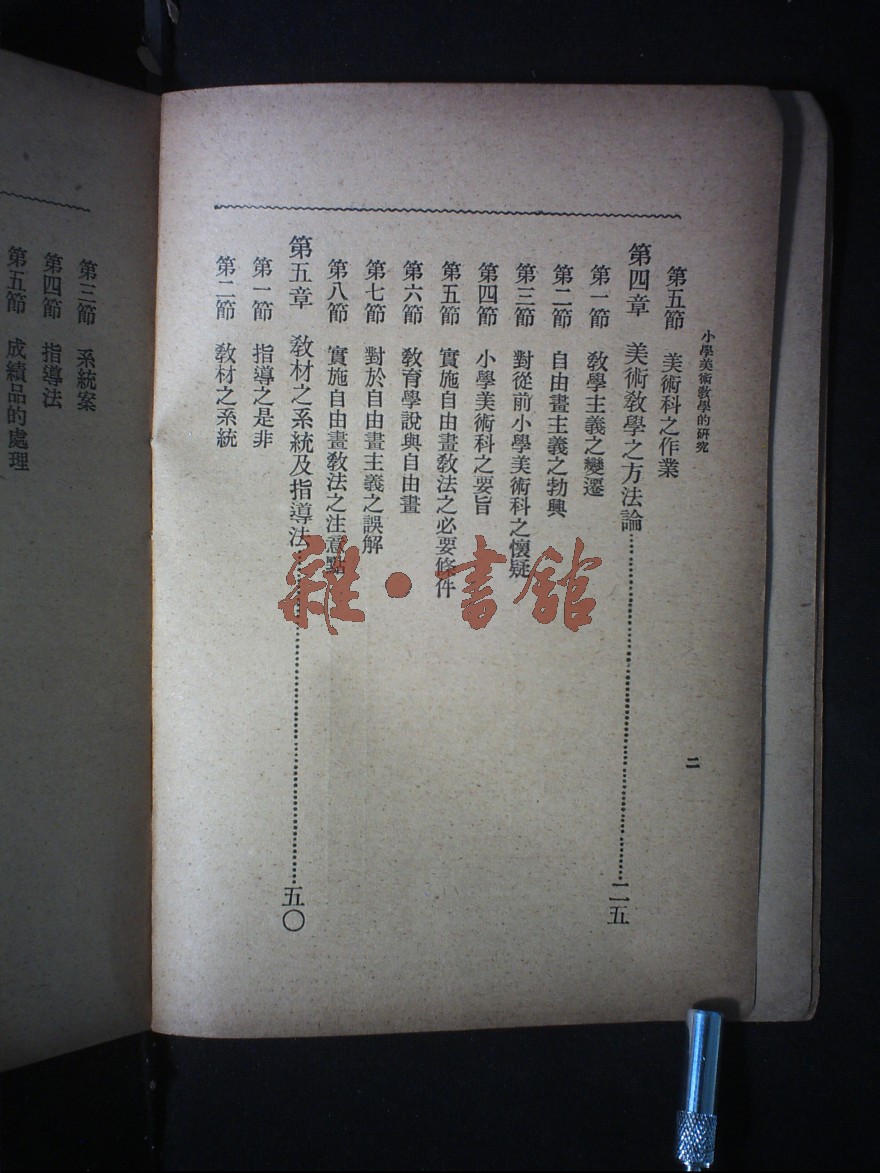 小學美術敎學的硏究
二
第五節 美術科之作業
第四章 美術敎學之方法論……二五
第一節 敎學主義之變遷
第二節 自由畫主義之勃興
第三節 對從前小學美術科之懷疑
第四節 小學美術科之要旨
第五節 實施自由畫敎法之必要條件
第六節 敎育學說與自由畫
第七節 對於自由畫主義之誤解
第八節 實施自由畫敎法之注意點
第五章 敎材之系統及指導法……五〇
第一節 指導之是非
第二節 敎材之系統
第三節 系統案
第四節 指導法
第五節 成績品的處理
雜·書館